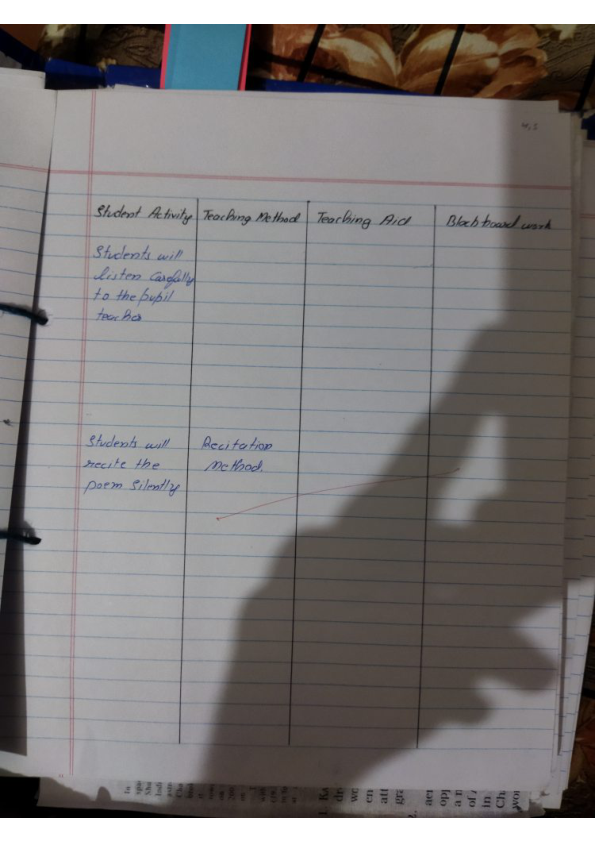 4.5
Student Activity Teaching Method Teaching Aid Blackboard work
Students will
listen carefully
to the pupil
teacher
Students will Recitation
recite the Method.
poem silently